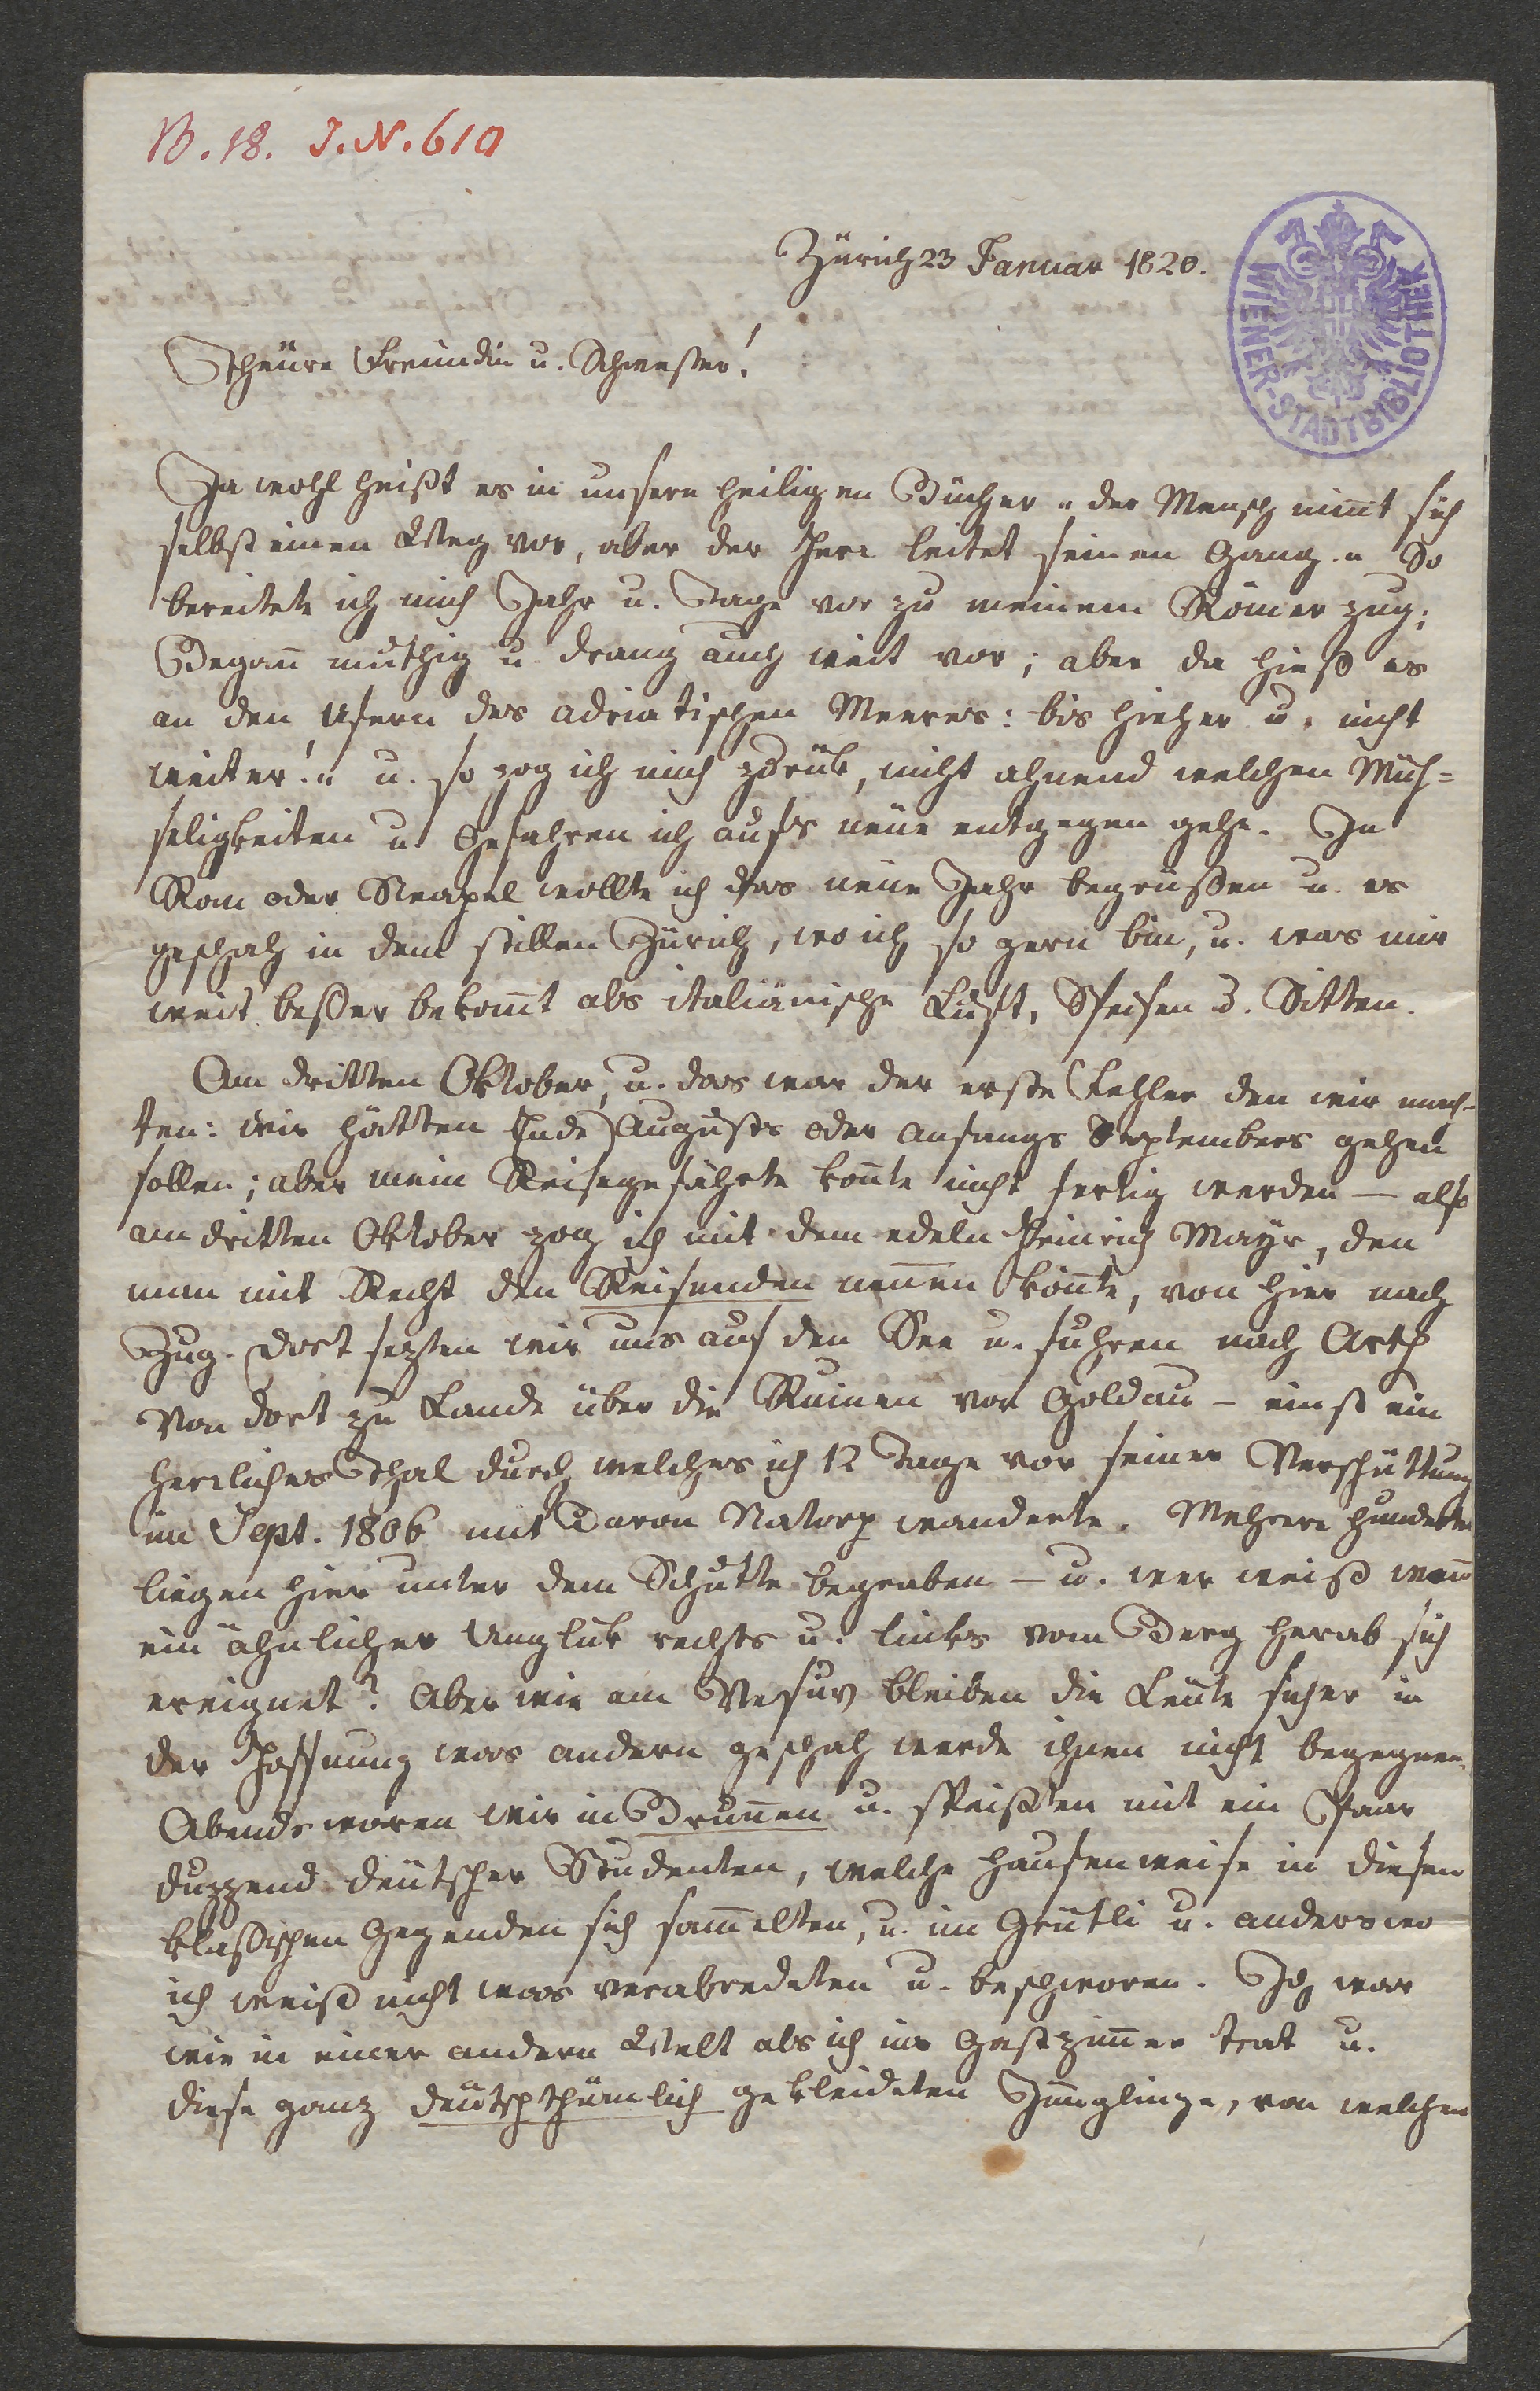 B. 18. J. N. 610
Zürich 23 Januar 1820.
WIENER-STADTBIBLIOTHEK
Theüre Freündin u. Schwester!
Ja wohl heißt es in unsern heiligen Bücher „der Mensch nim̄t sich
selbst einen Weg vor, aber der Herr leitet seinen Gang.“ So
bereitete ich mich Jahr u. Tage vor zu meinem Römer zug;
Began̄ muthig u drang auch weit vor; aber da hieß es
an den Ufern des adriatischen Meeres: bis hieher u. nicht
weiter!“ u. so zog ich mich zurük, nicht ahnend welchen Müh=
seligkeiten u. Gefahren ich aufs neüe entgegen gehe. In
Rom oder Neapel wollte ich das neüe Jahr begrüßen u. es
geschah in dem stillen Zürich, wo ich so gern bin, u. was mir
weit beßer bekom̄t als italiänische Luft, Speisen u. Sitten.
Am dritten Oktober, u. das war der erste Fehler den wir mach-
ten: wir hätten Ende Augusts oder Anfangs Septembers gehen
sollen; aber mein Reisegefährte kon̄te nicht fertig werden — also
am dritten Oktober zog ich mit dem edeln Heinrich Mayr, den
man mit Recht den Reisenden nen̄en kön̄te, von hier nach
Zug. Dort sezten wir uns auf den See u. fuhren nach Arth
von dort zu Lande über die Ruinen von Goldau – einst ein
herrliches Thal durch welches ich 12 Tage vor seiner Verschüttung
im Sept. 1806 mit Baron Natorp wanderte. Mehrere hunderte
liegen hier unter dem Schutte begraben – u. wer weiß wan̄
ein ähnliches Unglük rechts u. links vom Berg herab sich
ereignet? Aber wie am Vesuv bleiben die Leüte sicher in
der Hoffnung was andern geschah werde ihnen nicht begegnen.
Abends waren wir in Brun̄en u. speißten mit ein Paar
duzzend deütscher Studenten, welche haufenweise in diesen
klaßischen Gegenden sich sam̄elten, u. im Grütli u. anderswo
ich weiß nicht was verabredeten u. beschworen. Ich war
wie in einer andern Welt als ich ins Gastzim̄er trat u.
diese ganz deütschthümlich gekleideten Jünglinge, von welchen